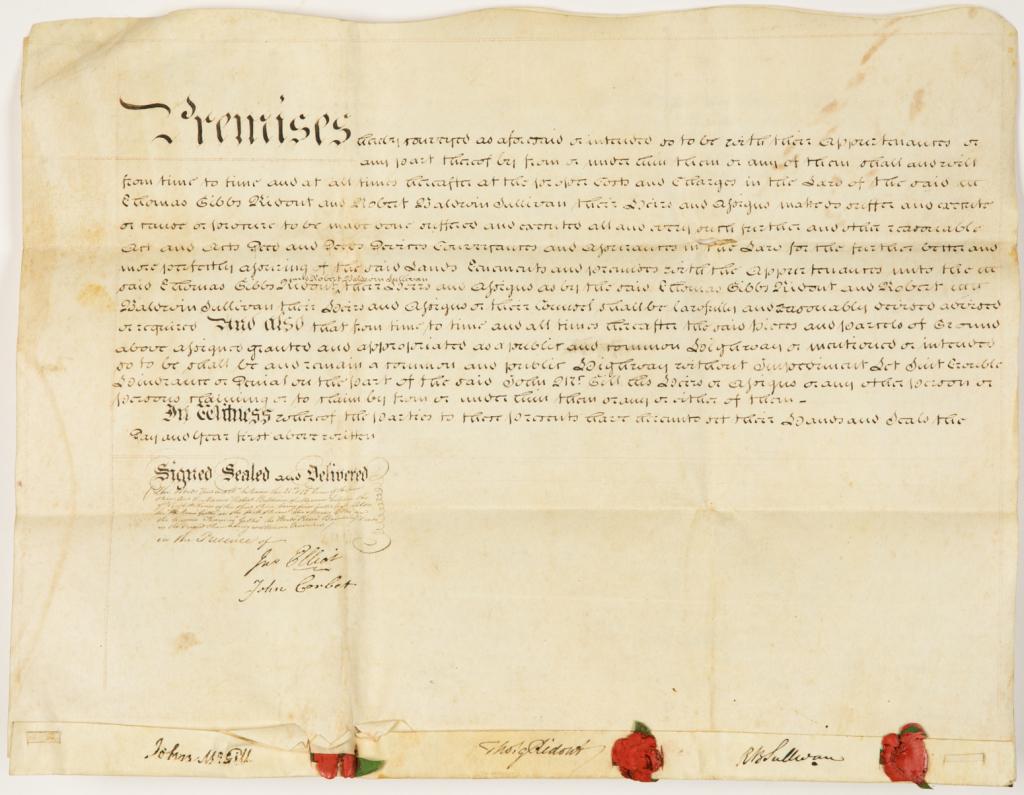 Premises hereby conveyed as aforesaid or intended so to be with their Appurtenances or
any part thereof by from or under him them or any of them shall and will
from time to time and at all times hereafter at the proper Costs and Charges in the Law of the said
Thomas Gibbs Ridout and Robert Baldwin Sullivan their Heirs and Assigns make do suffer and execute
or cause or procure to be made done suffered and executed all and every such further and other reasonable
Act and Acts Deed and Deeds Devices Conveyances and Assurances in the Law for the further better and
more perfectly assuring of the said Lands Tenements and premises with the Appurtenances unto the
and Robert Baldwin Sullivan
said Thomas Gibbs Ridout their Heirs and Assigns as by the said Thomas Gibbs Ridout and Robert
Baldwin Sullivan their Heirs and Assigns or their Counsel shall be lawfully and reasonably devised advised
or required And also that from time to time and all times hereafter the said Pieces and Parcels of Ground
above assigned granted and appropriated as a public and common Highway or mentioned or intended
so to be shall be and remain a common and public Highway without Impediment Let Suit Trouble
Hinderance or Denial on the part of the said John McGill his Heirs or Assigns or any other Person or
Persons claiming or to claim by from or under him them or any or either of them –
In Witness whereof the Parties to these Presents have hereunto set their Hands and Seals the
Day and Year first above written
Signed Sealed and Delivered
in the Presence of
Jas Elliot
John Corbet
John McGill
Thos G Ridout
RB Sullivan